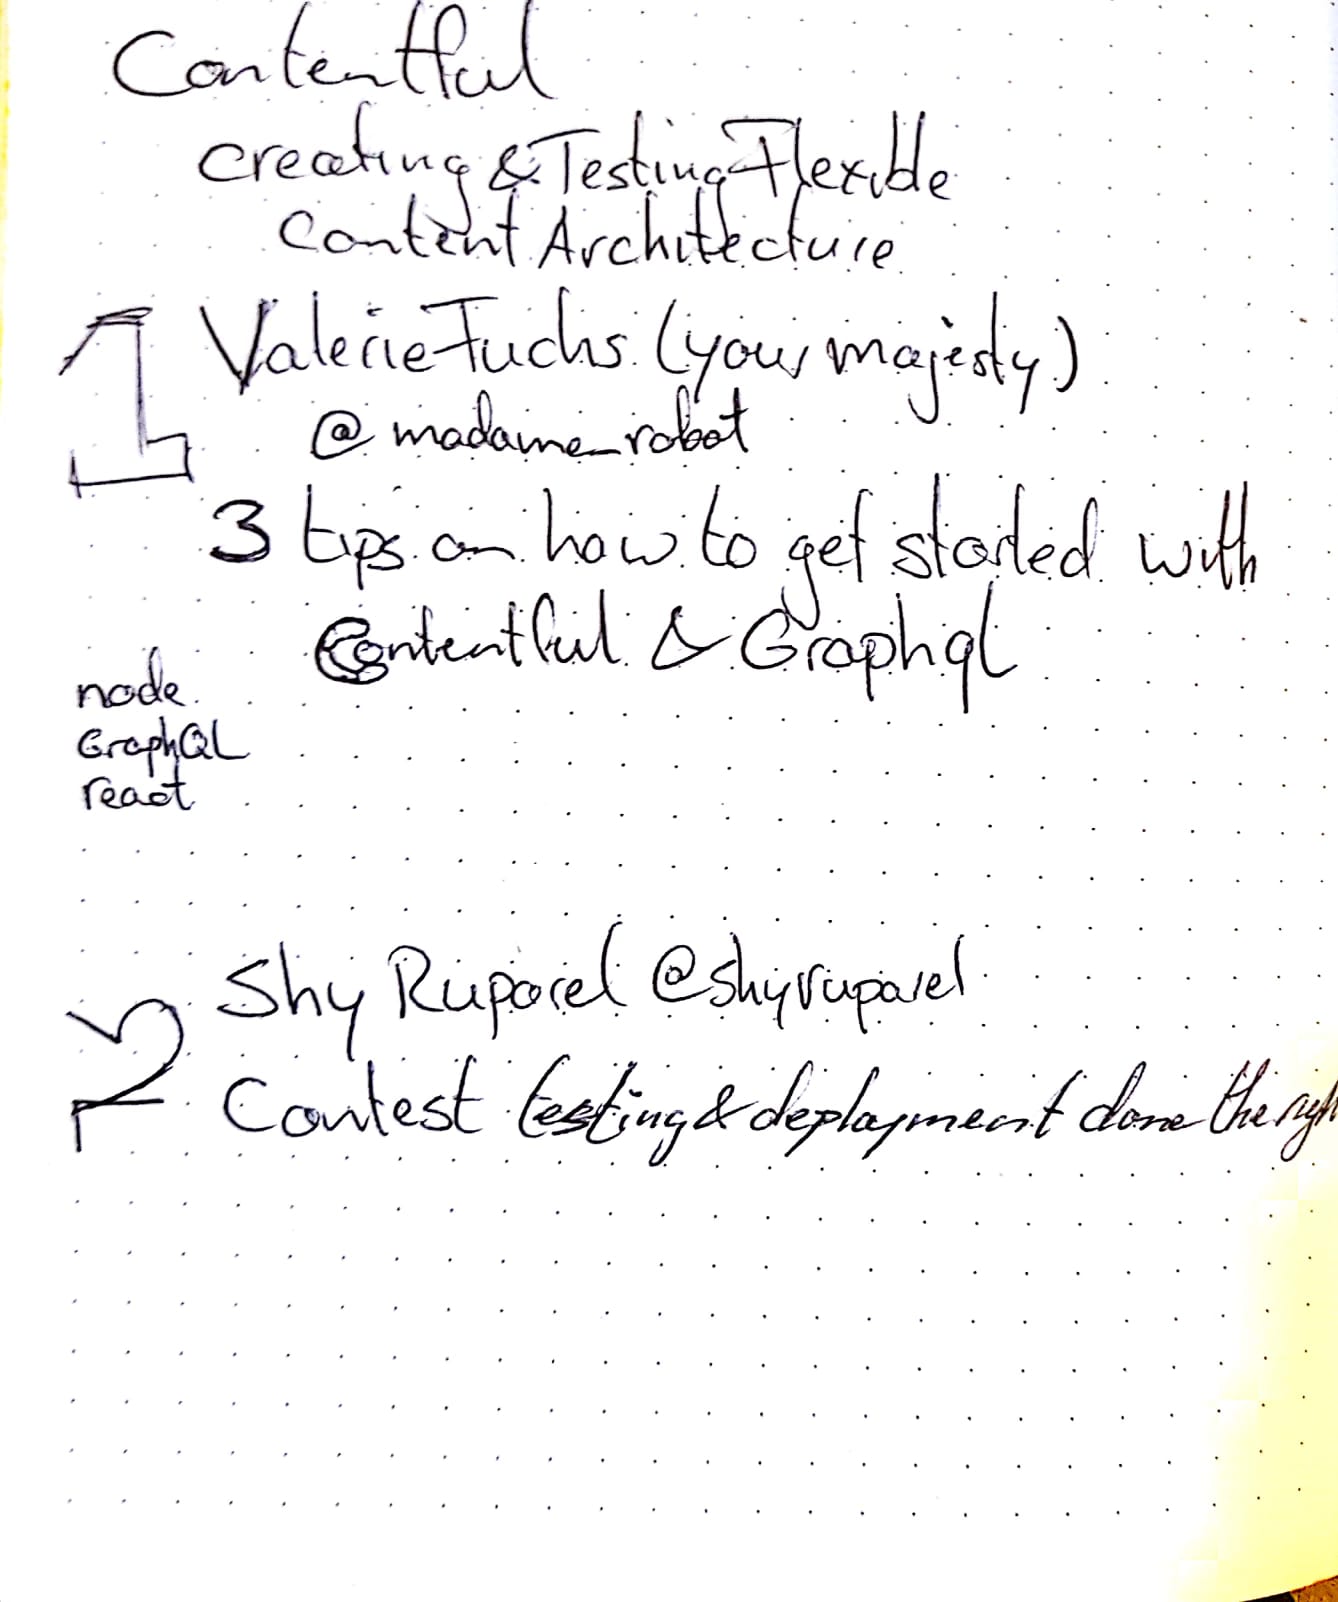 Contentful
Creating & Testing Flexible
Content Architecture
1 Valerie Fuchs (your majesty)
@madame_robot
3 tips on how to get started with
Contentful & Graphql
node
GraphQL
react
2 Shy Ruparel @shyruparel
Contest testing & deployment done the righ